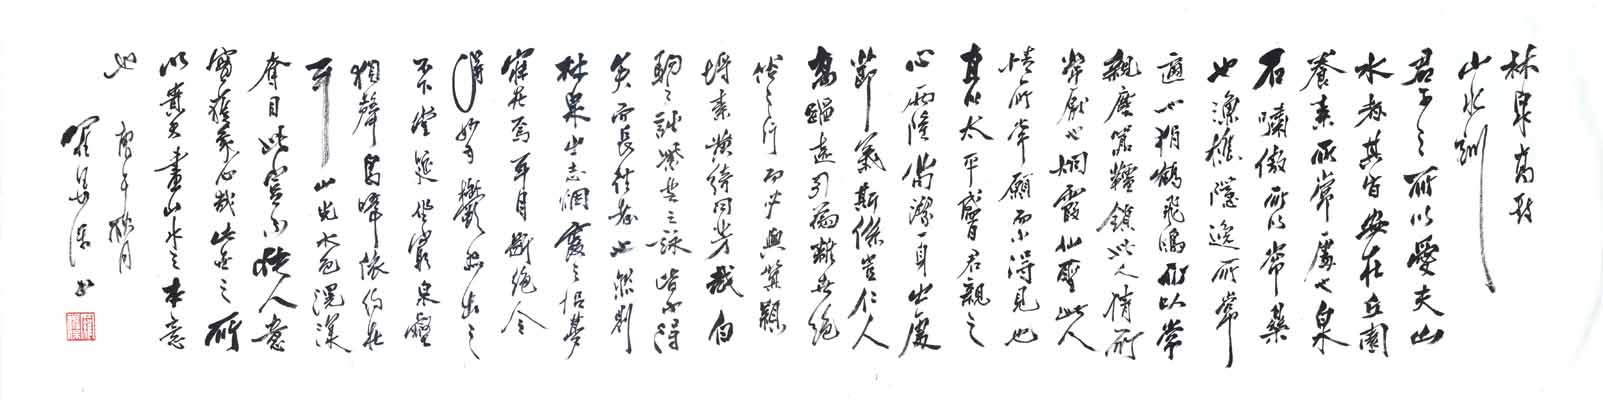 林泉高致
山水訓
君子之所以愛夫山
水者其旨安在丘園
養素所常處也泉
石嘯傲所以常樂
也漁樵隱逸所常
適也猿鶴飛鳴所以常
親塵囂韁鎖此人情所
常厭也烟霞仙聖此人
情所常願而不得見也
直以太平盛日君親之
心兩隆苟潔一身出處
節義斯係豈仁人
高蹈遠引為離世絕
俗之行而必與箕潁
埒素黃綺同芳哉白
駒之詩紫芝之詠皆不得
而長往者也然則
林泉之志烟霞之侶夢
寐在焉耳目斷絕今
得妙手鬱然出之
不下堂筵坐窮泉壑
猿聲鳥啼依約在
耳山光水色滉漾
奪目此豈不快人意
實獲我心哉此世之所
以貴夫畫山水之本意
也
秋月
書